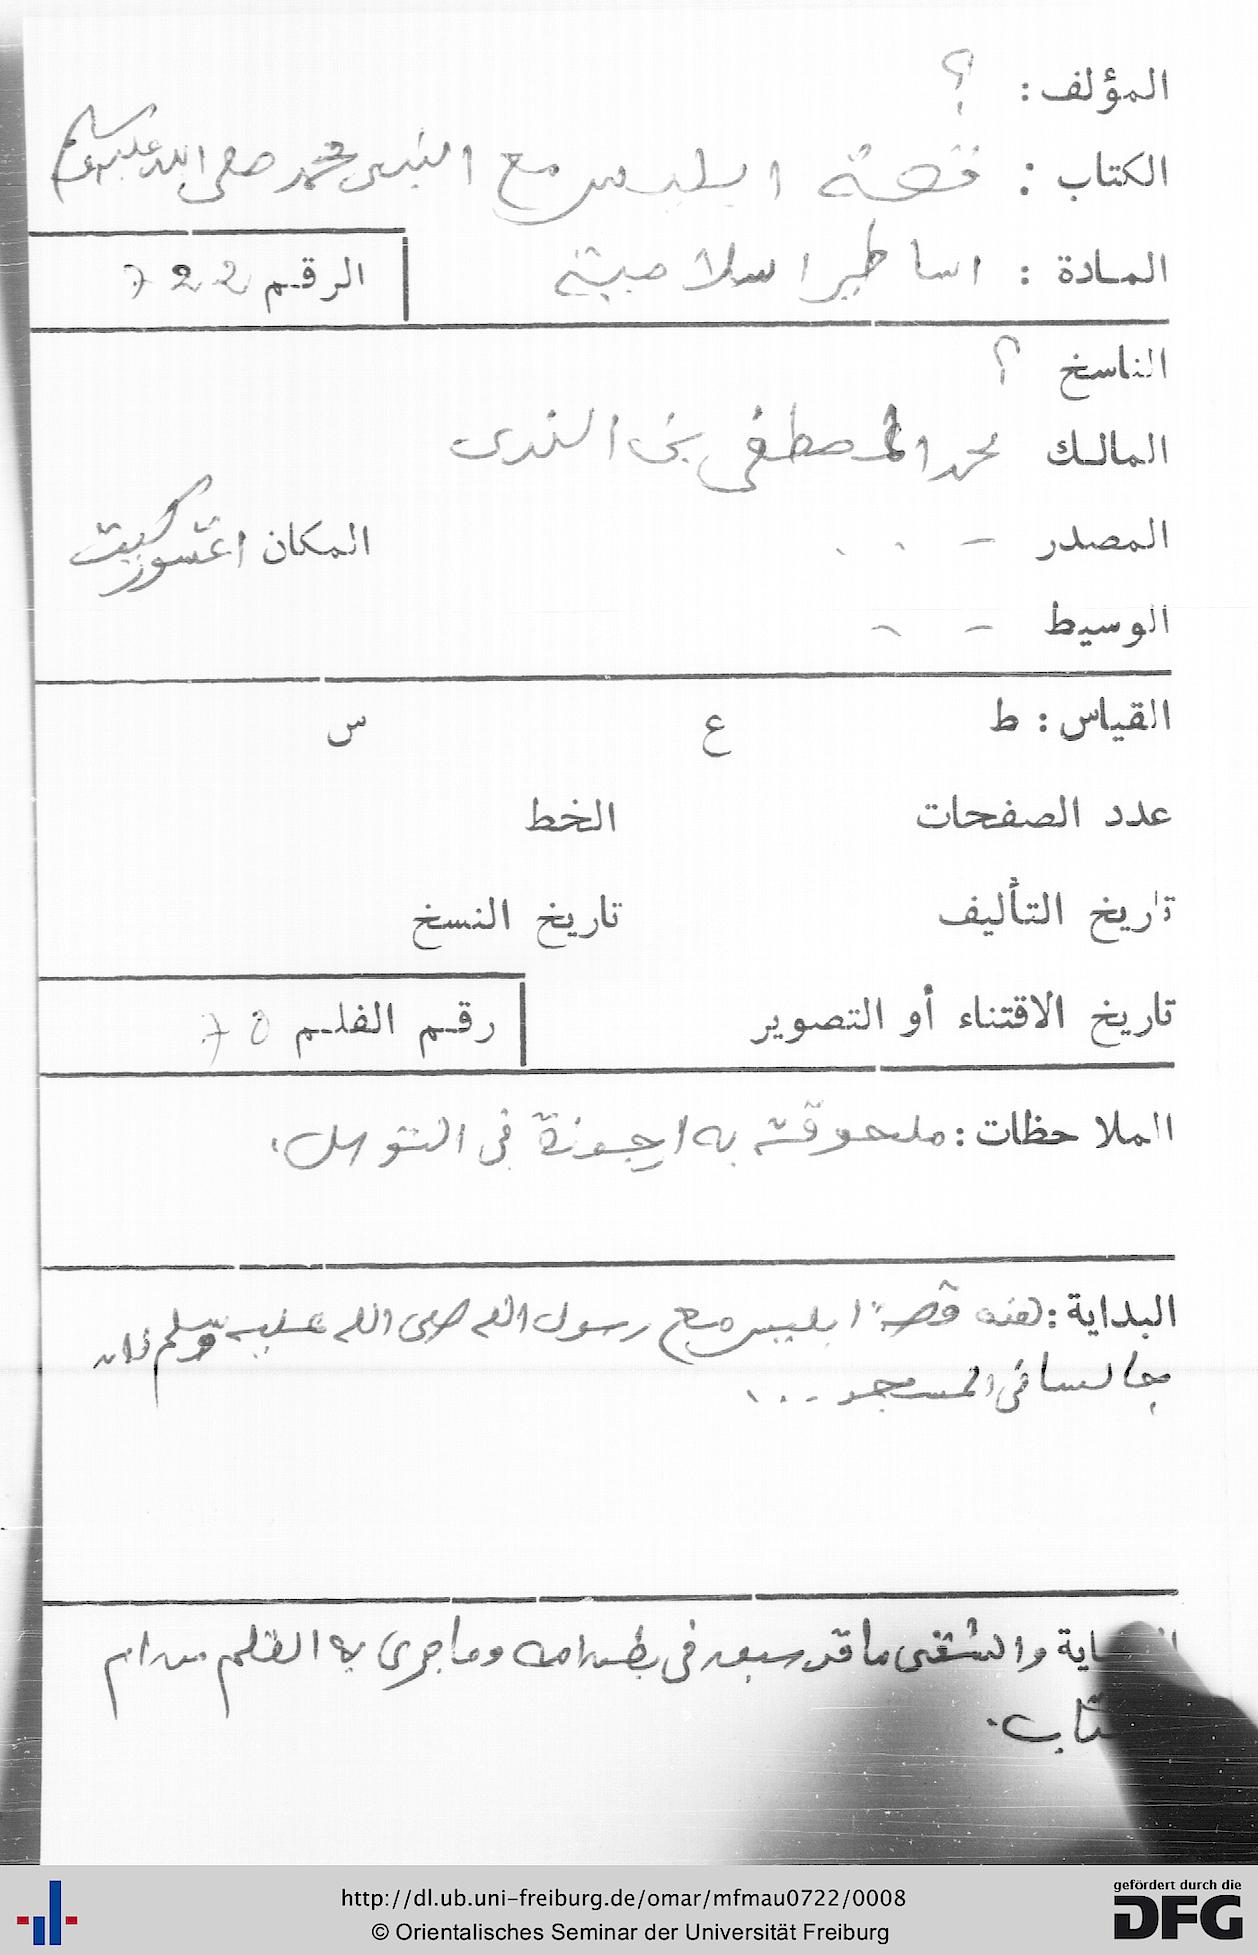 المؤلف : ؟
الكتاب : قصة ابليس مع النبي محمد صلى الله عليه وسلم
المادة : اساطير اسلامية
الرقم 722
الناسخ ؟
المالك محمد المصطفى بن الندى
المصدر -
المكان
الوسيط - -
القياس : ط ع س
عدد الصفحات الخط
تاريخ التأليف تاريخ النسخ
تاريخ الاقتناء أو التصوير
رقم الفلم
الملاحظات : ملحوقة به ارجوزة في التوسل.
البداية : هذه قصة ابليس مع رسول الله صلى الله عليه وسلم كان
جالسا في المسجد ...
والشقي ما قد سبق في بطن امه وما جرى به القلم من ام
http://dl.ub.uni-freiburg.de/omar/mfmau0722/0008
© Orientalisches Seminar der Universität Freiburg
gefördert durch die
DFG